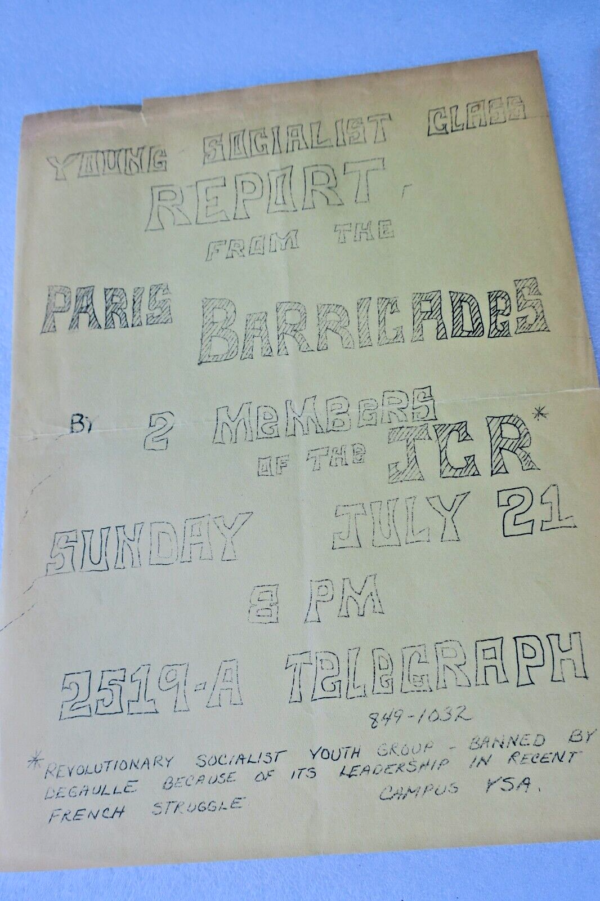 YOUNG SOCIALIST CLASS
REPORT
FROM THE
PARIS BARRICADeS
By 2 MeMBeRS
OF THe JCR*
SUNDAY JULY 21
8 PM
2519-A TeLeGRAPH
849-1032
*REVOLUTIONARY SOCIALIST YOUTH GROUP - BANNED BY
DEGAULLE BECAUSE OF ITS LEADERSHIP IN RECENT
FRENCH STRUGGLE CAMPUS YSA.